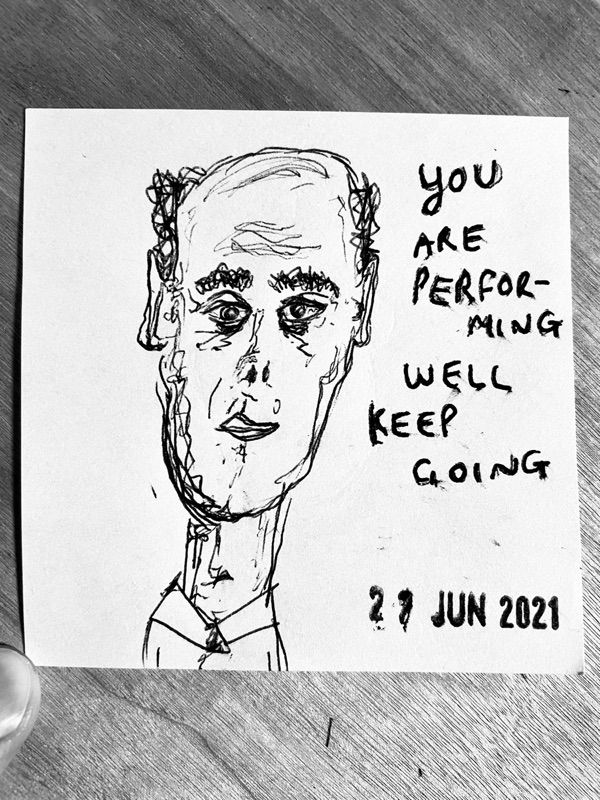 YOU
ARE
PERFOR-
MING
WELL
KEEP
GOING
27 JUN 2021